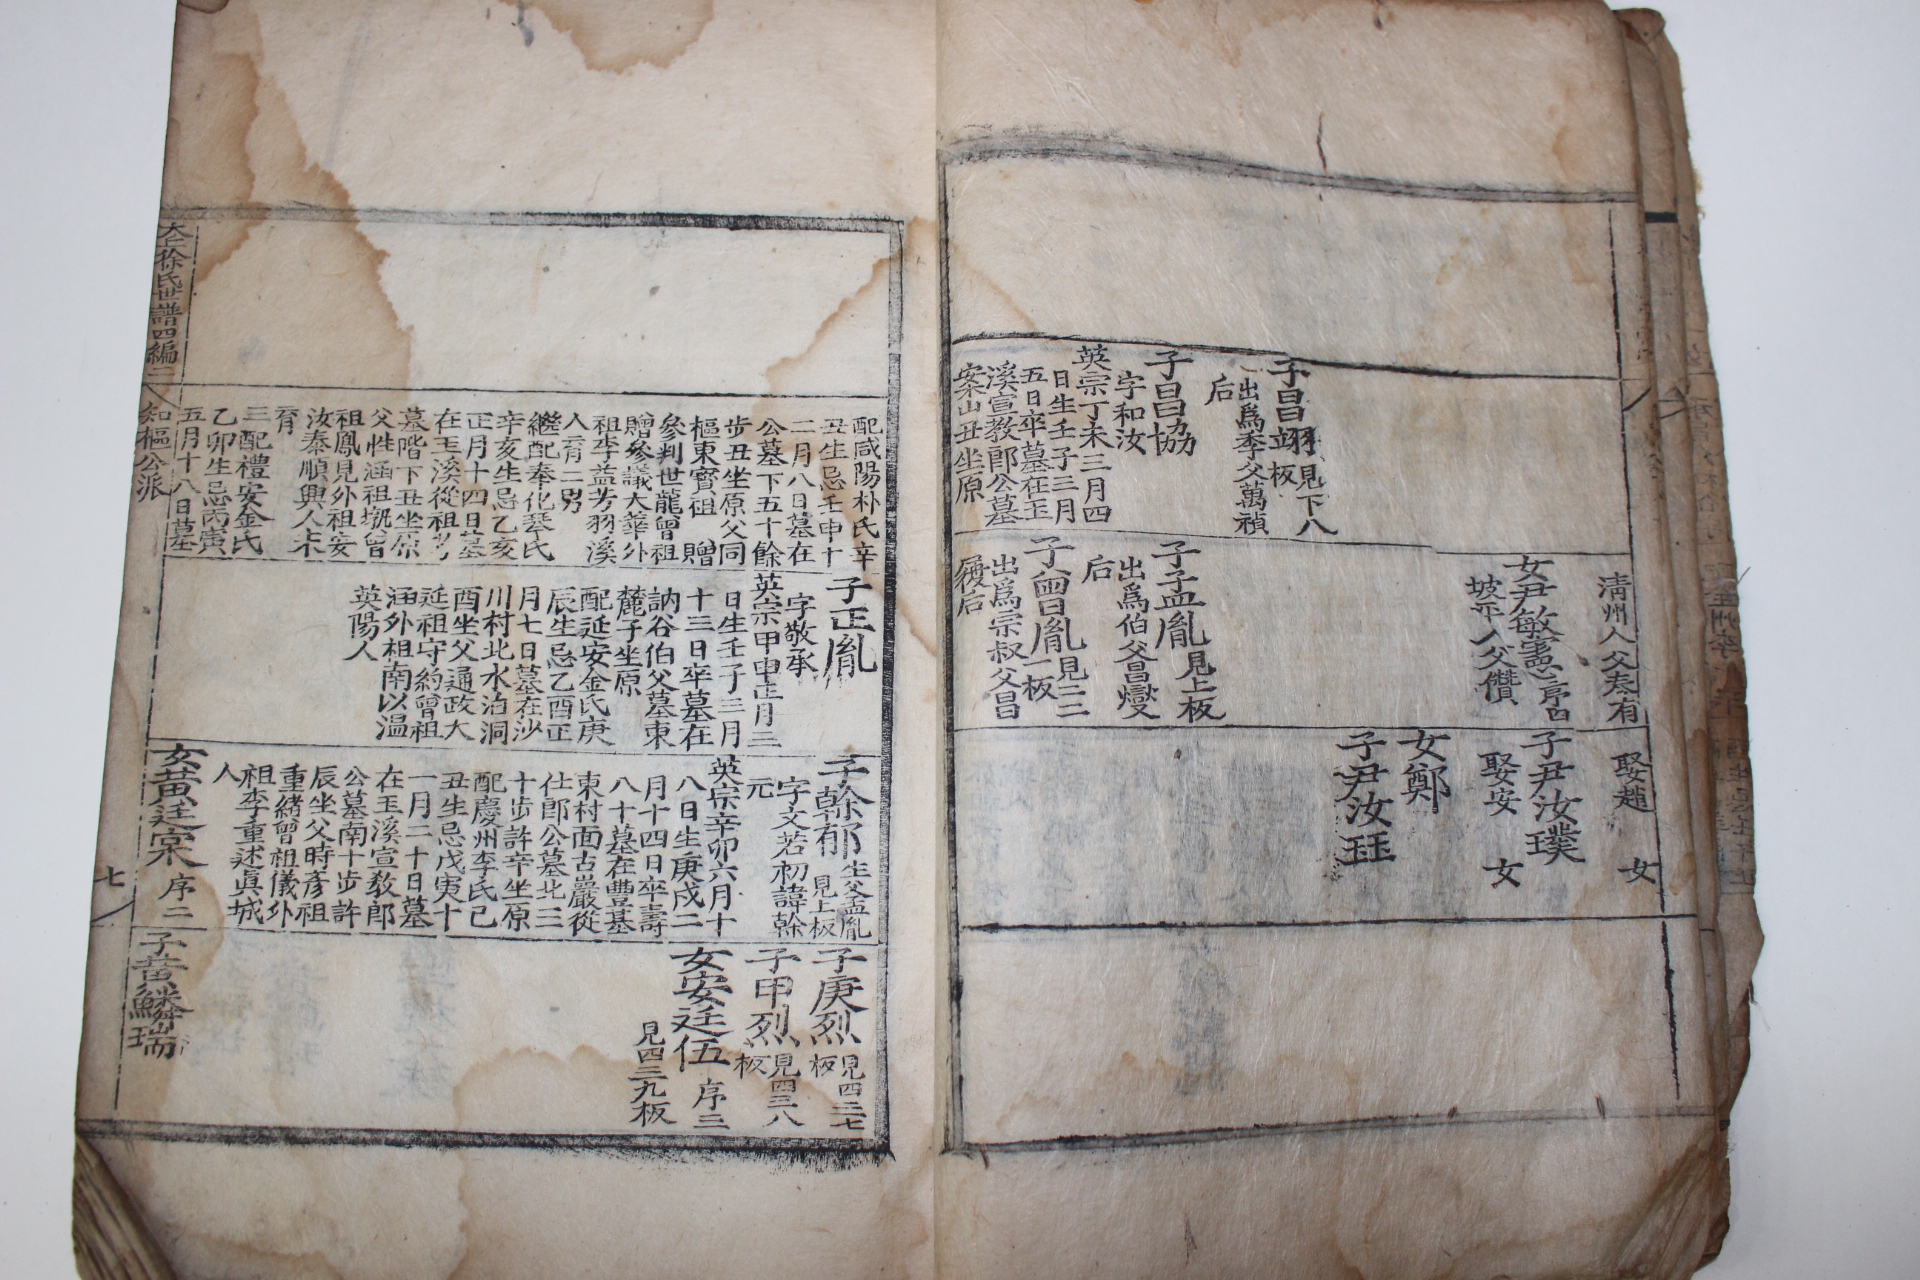 子昌翊
見下八
板
出爲季父萬禎
后
子昌協
字和汝
英宗丁未三月四
日生壬子三月
五日卒墓在玉
溪宣教郎公墓
案山丑坐原
清州人父泰有
女尹敏憲序四
坡平人父儹
子孟胤
見上板
出爲伯父昌燮
后
子曾胤
見二二
一板
出爲宗叔父昌
后
娶趙 女
子尹汝璞
娶安 女
女鄭
子尹汝珏
配咸陽朴氏辛
丑生忌壬申十
二月八日墓在
公墓下五十餘
步丑坐原父同
樞東賓祖 贈
參判世龍曾祖
贈參議大華外
祖李益芳羽溪
人育二男
繼配奉化琴氏
辛亥生忌乙亥
正月十四日墓
在玉溪從祖考
墓階下丑坐原
父性涵祖墢曾
祖鳳見外祖安
汝泰順興人未
育
三配禮安金氏
乙卯生忌丙寅
五月十八日墓
子正胤
字敬承
英宗甲申正月二
日生壬子三月
十三日卒墓在
訥谷伯父墓東
麓子坐原
配延安金氏庚
辰生忌乙酉正
月七日墓在沙
川村北水泊洞
酉坐父通政大
延祖守約曾祖
涵外祖南以溫
英陽人
子榦郁
生父孟胤
見上板
字文若初諱榦
元
英宗辛卯六月十
八日生庚戌二
月十四日卒壽
八十墓在豊基
東村面古巖從
仕郎公墓北三
十步許辛坐原
配慶州李氏己
丑生忌戊寅十
一月二十日墓
在玉溪宣教郎
公墓南十步許
辰坐父時彥祖
重緖曾祖儀外
祖李重述眞城
人
女黃廷寀序二
子庚烈
見四三七
板
子甲烈
見四三八
板
女安廷伍序三
見四三九板
子黃鱗瑞
大丘徐氏世譜四編二
知樞公派
七